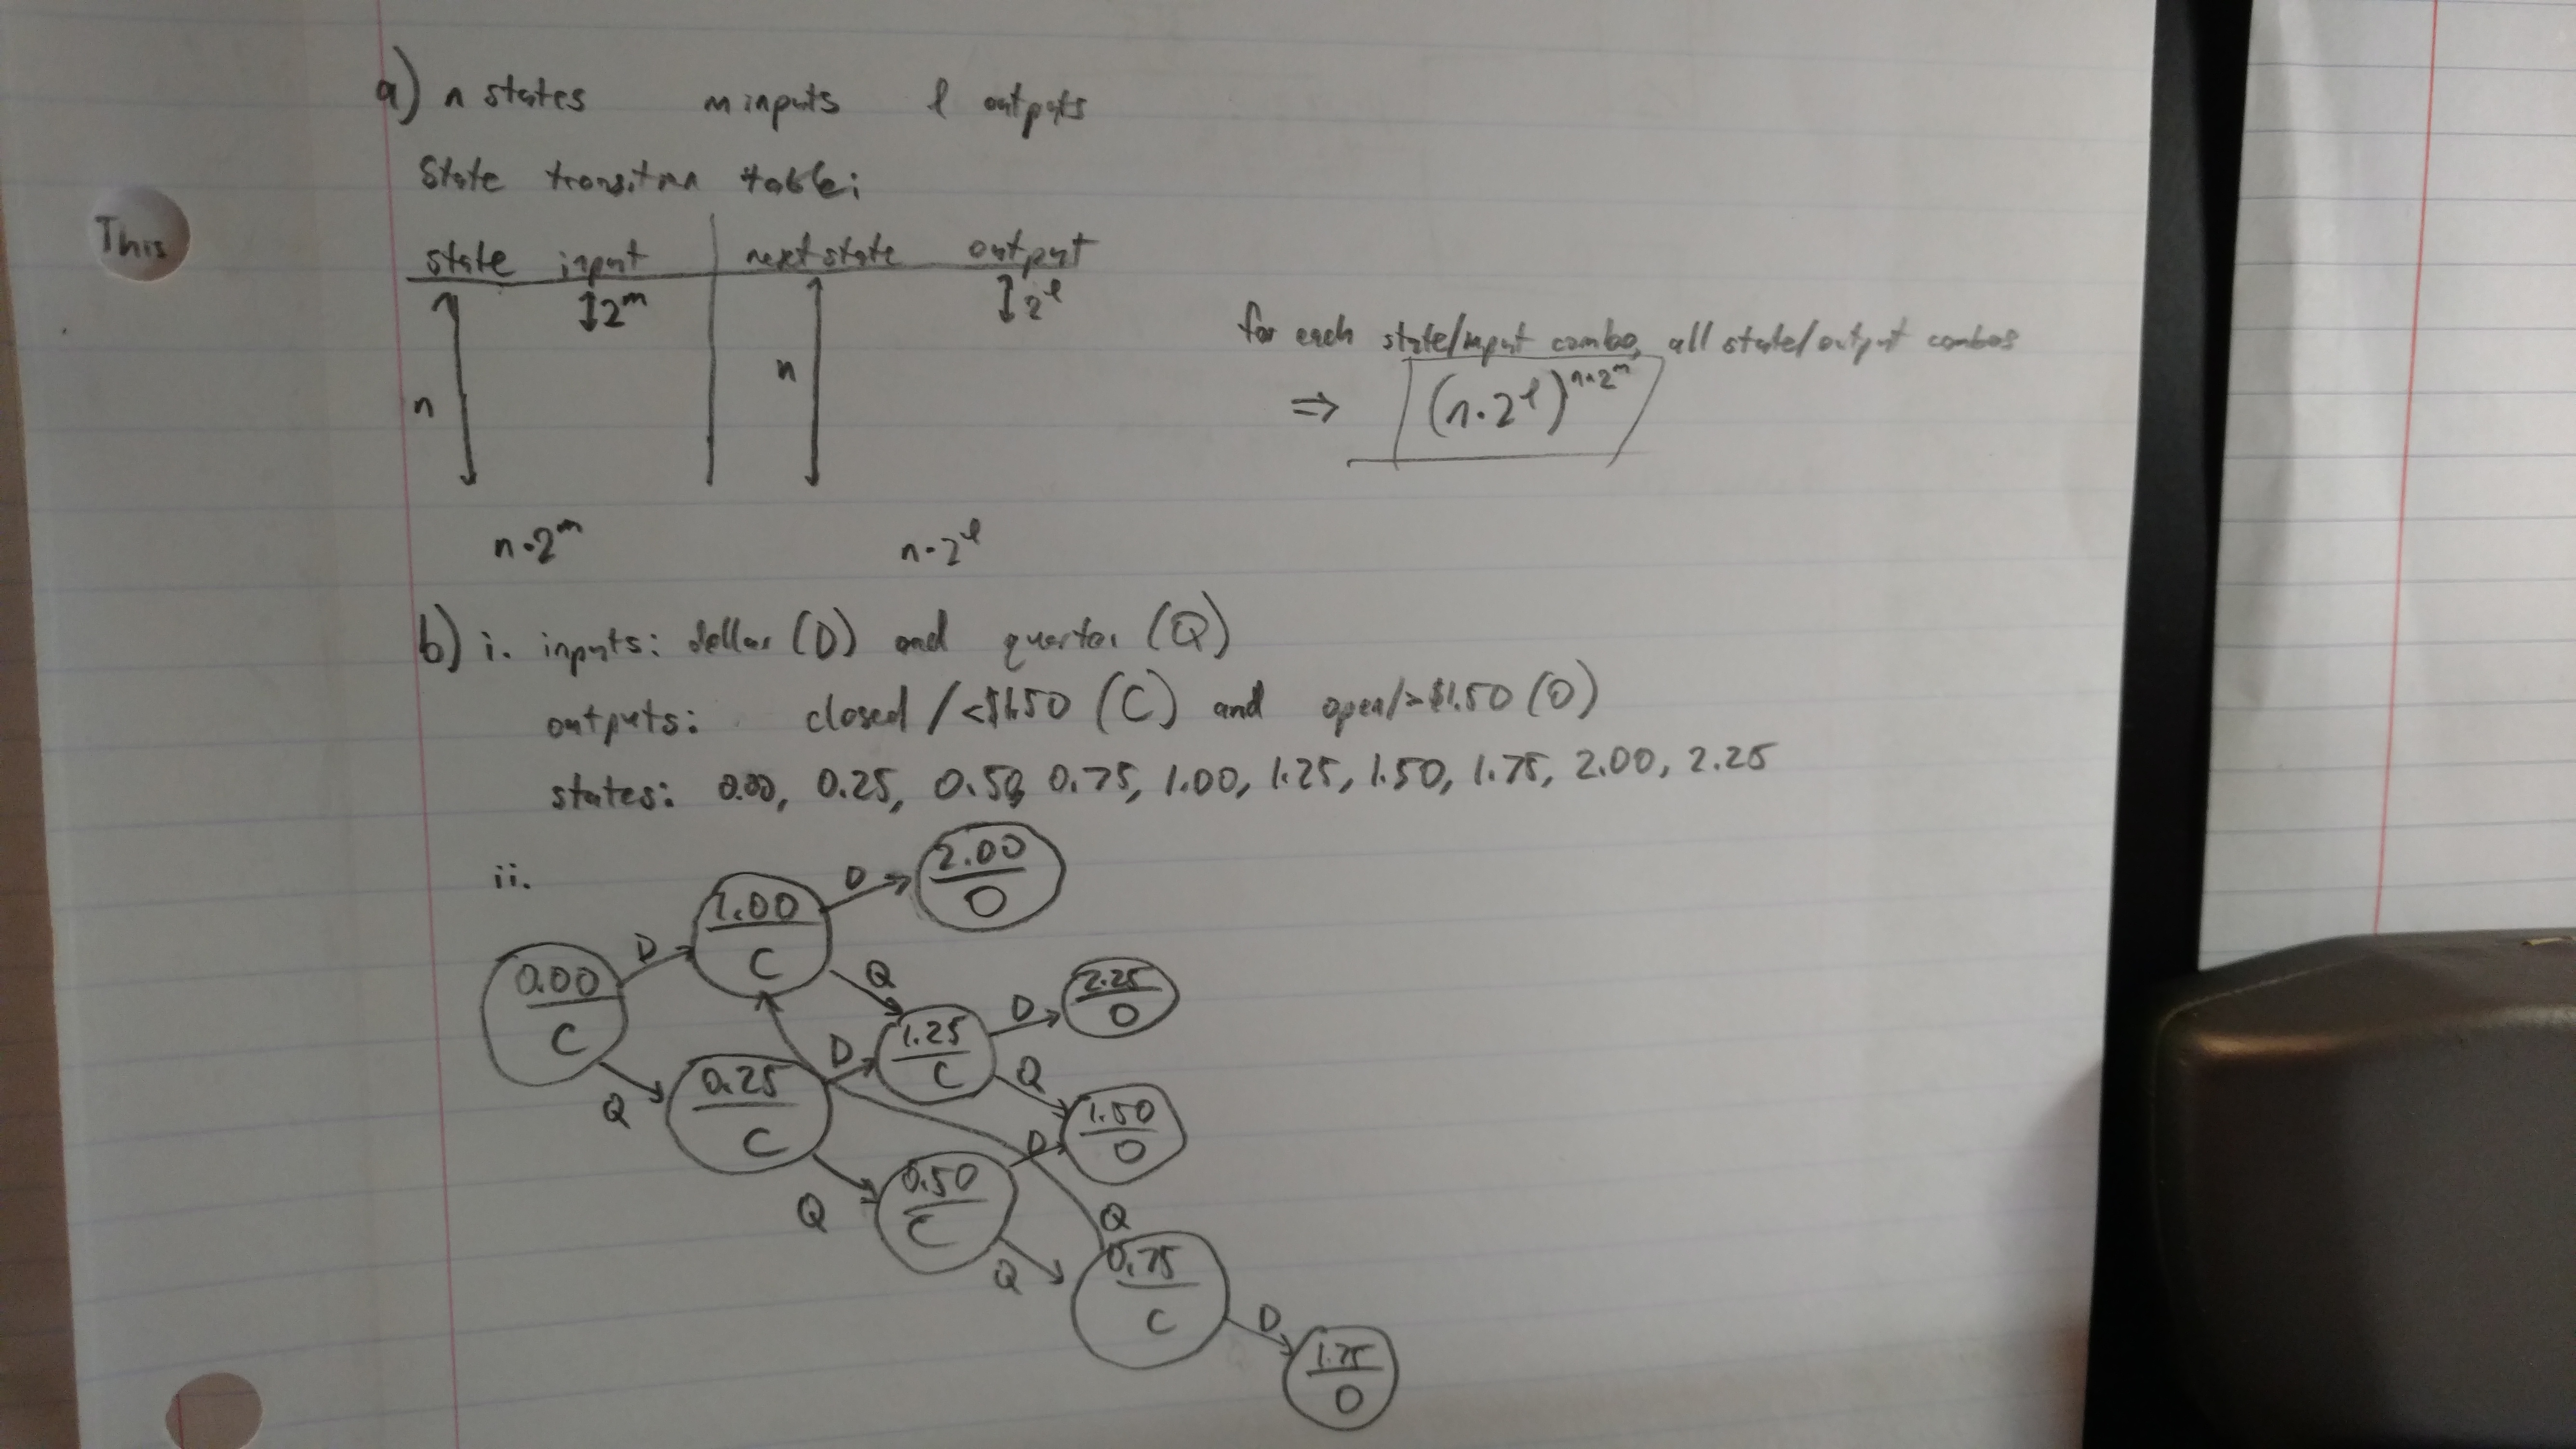 a) n states m inputs l outputs
State transition table:
This
state input next state output
2^m 2^l
for each state/input combo, all state/output combos
n n
⇒ (n·2^l)^n·2^m
n·2^m n·2^l
b) i. inputs: dollar (D) and quarter (Q)
outputs: closed / <$1.50 (C) and open/≥$1.50 (O)
states: 0.00, 0.25, 0.50, 0.75, 1.00, 1.25, 1.50, 1.75, 2.00, 2.25
ii.
2.00
O
D
1.00
C
D
0.00
C
Q
2.25
O
D
1.25
C
D
Q
0.25
C
Q
1.50
O
D
0.50
C
Q
Q
Q
0.75
C
D
1.75
O